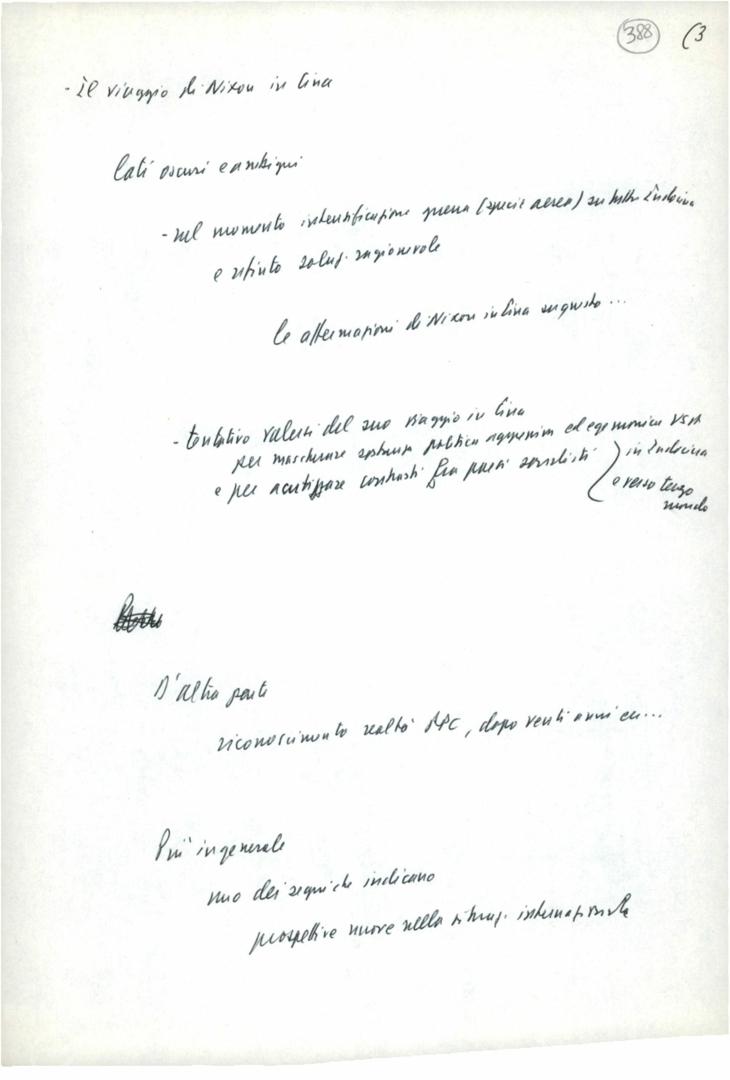 388 (3
- Il viaggio di Nixon in Cina
Lati oscuri e ambigui
- nel momento intensificazione guerra (specie aerea) su tutta Indocina
e rifiuto soluz. ragionevole
le affermazioni di Nixon in Cina su questo ...
- tentativo valersi del suo viaggio in Cina
per mascherare sostanza politica aggressiva ed egemonica USA
e per acutizzare contrasti fra paesi socialisti
in Indocina
e verso terzo
mondo
D'altra parte
riconoscimento realtà RPC, dopo venti anni cu...
Più in generale
uno dei segni che indicano
prospettive nuove nella situaz. internazionale